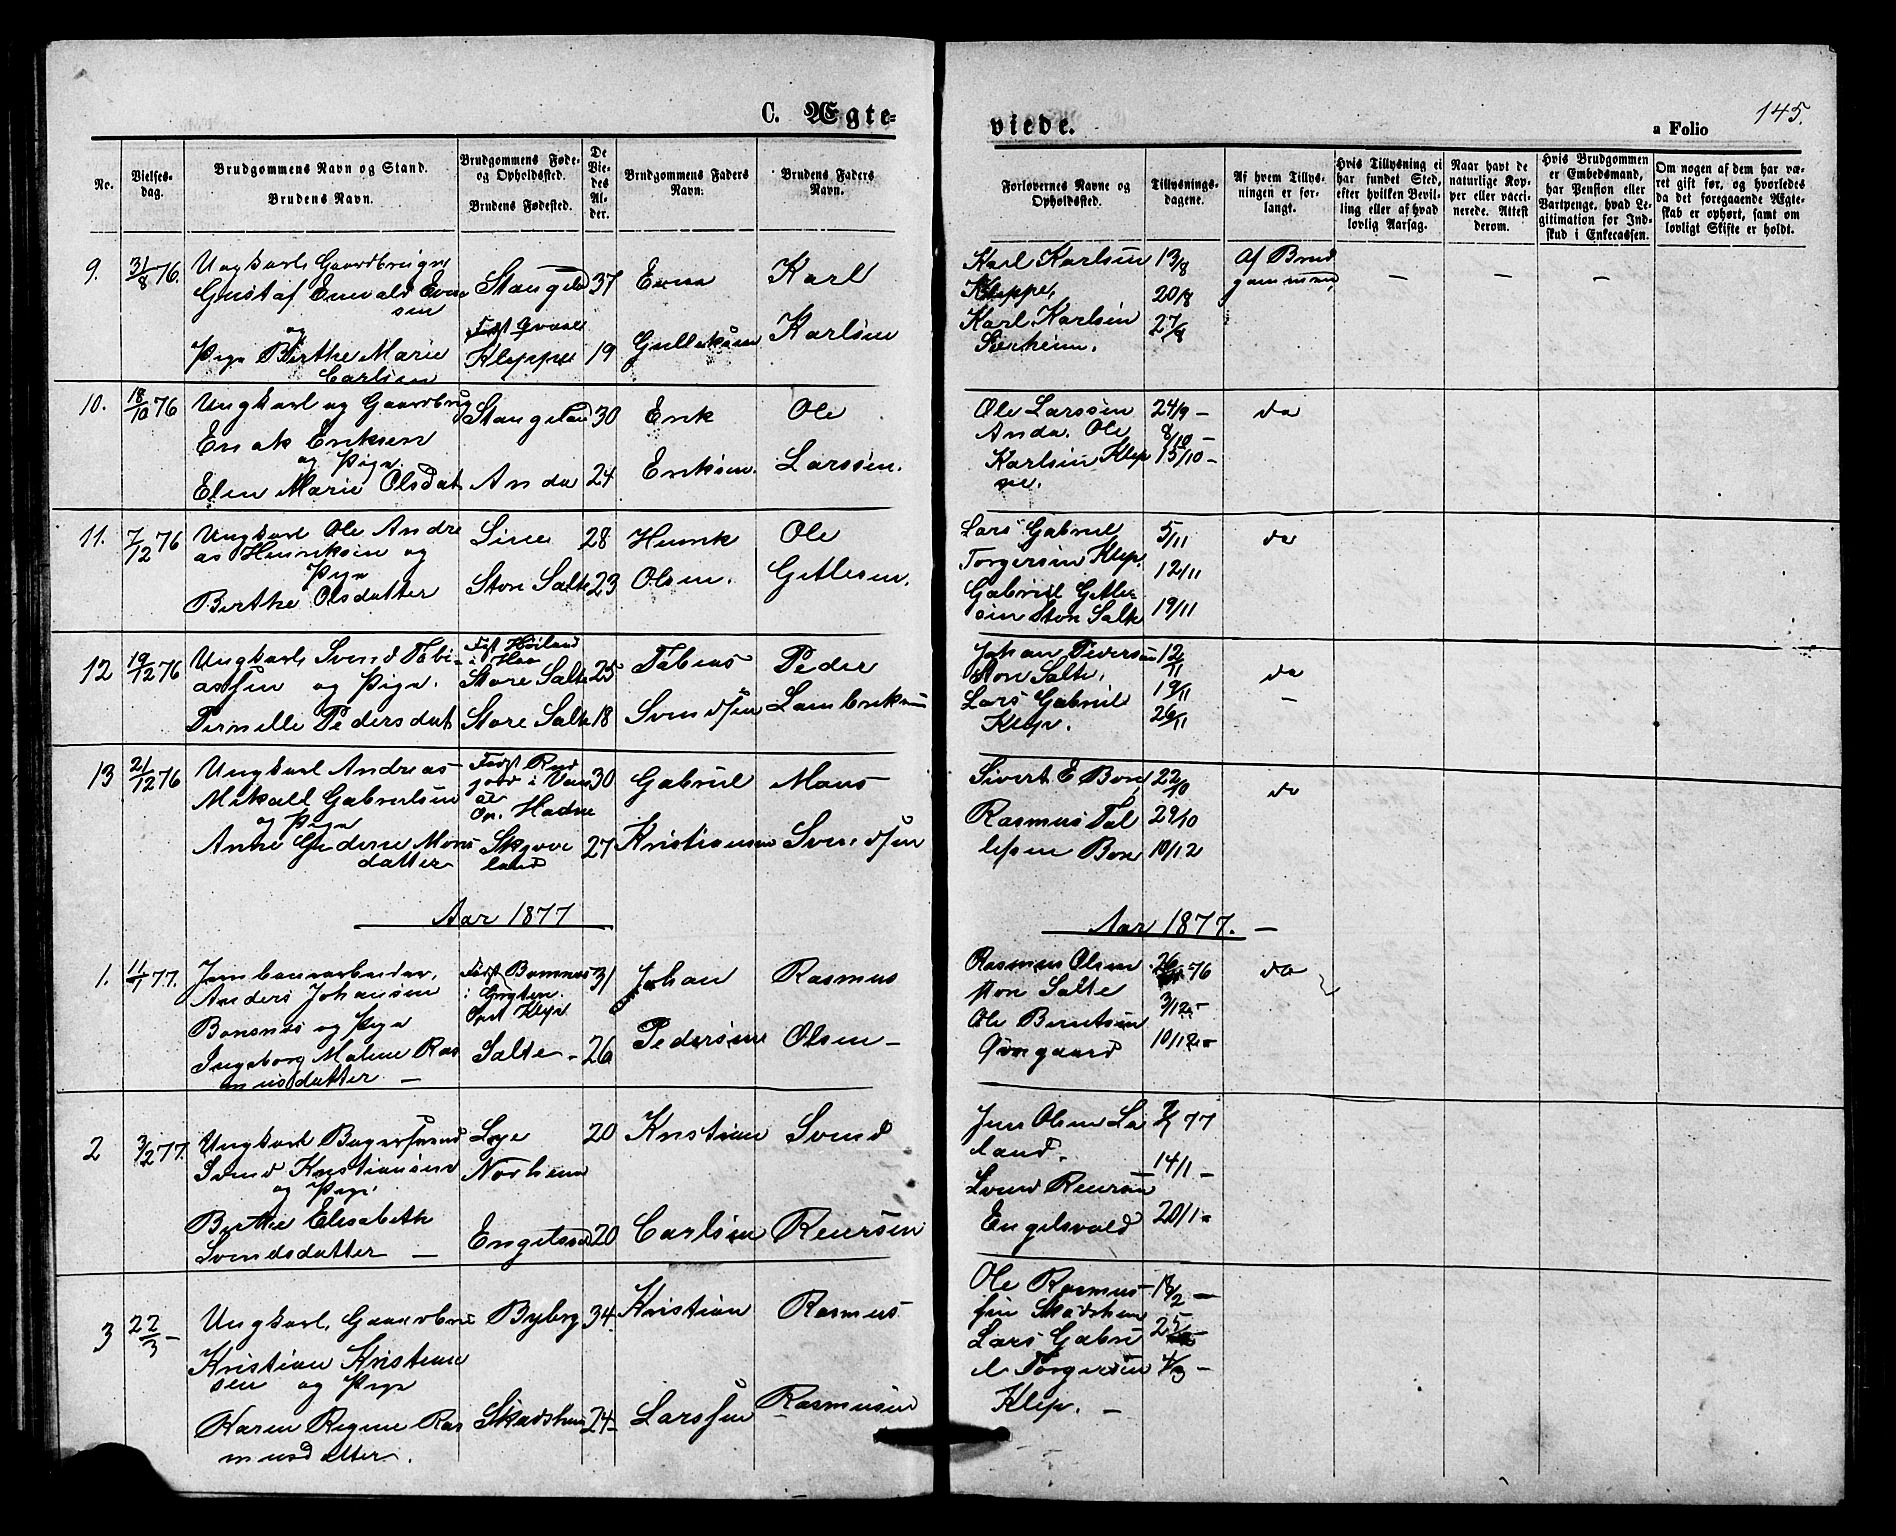 C. Ægte-
viede.
a Folio
145.
No.
Vielses-
dag.
Brudgommens Navn og Stand.
Brudens Navn.
Brudgommens Føde-
og Opholdssted.
Brudens Fødested.
De
Vie-
des
Al-
der.
Brudgommens Faders
Navn:
Brudens Faders
Navn.
Forlovernes Navne og
Opholdssted.
Tillysnings-
dagene.
Af hvem Tillys-
ningen er for-
langt.
Hvis Tillysning ei
har fundet Sted,
efter hvilken Bevil-
ling eller af hvad
lovlig Aarsag.
Naar havt de
naturlige Kop-
per eller vacci-
nerede. Attest
derom.
Hvis Brudgommen
er Embedsmand,
har Pension eller
Vartpenge, hvad Le-
gitimation for Ind-
skud i Enkecassen.
Om nogen af dem har væ-
ret gift før, og hvorledes
da det foregaaende Ægte-
skab er ophørt, samt om
lovligt Skifte er holdt.
9. 31/8 76.
Ungkarl Gaardbruger
Gustaf Enevald Even
sen
og
Pige Berthe Marie
Carlsen
Stangeland 37
Kleppe 19
Even
Gullaksen
Karl
Karlsen
Karl Karlsen
Kleppe,
Karl Karlsen
13/8
20/8
27/8
Af Brud
gommen
– – –
10. 18/10 76
Ungkarl og Gaardbrug
Enok Eriksen
og Pige
Elen Marie Olsdat
Stangeland 30
Anda 24
Erik
Eriksen.
Ole
Larssen.
Ole Larssen
Anda. Ole
Karlsen Klep
pe.
24/9 –
8/10 –
15/10 –
do
11. 7/12 76
Ungkarl Ole Andre
as Henriksen og
Pige
Berthe Olsdatter
Sire 28
Store Salte 23
Henrik
Olsen.
Ole
Gitlesen.
Lars Gabriel
Torgersen Klep.
Gabriel Gitle
sen Store Salte
5/11
12/11
19/11
do
12 19/12 76
Ungkarl Svend Tobi-
assen og Pige.
Pernille Pedersdat
Født Høiland
i Haa
Store Salte 25
Store Salte 18
Tobias
Svendsen
Peder
Lambriksen
Johan Pedersen
Store Salte.
Lars Gabriel
Klep.
12/11
19/11
26/11
do
–
13 21/12 76
Ungkarl Andreas
Mikall Gabrielsen
og Pige
Anne Gjedine Mons
datter
Op. Hadne
30
Skjæve
land 27
Gabriel
Kristiansen
Mons
Svendsen
Sivert E Bore
Rasmus Tol
lefsen Bore
22/10
29/10
10/12
do
Aar 1877
Aar 1877. –
1. 11/1 77.
Jernbanearbeider.
Anders Johansen
Bonsnes og Pige
Ingeborg Maline Ras
musdatter –
Født Bonsnes
Opst Klep
31
Salte – 26
Johan
Pedersen
Rasmus
Olsen –
Rasmus Olsen
store Salte
Ole Berntsen
26/ 76
3/12 –
10/12 –
do
2 3/2 77.
Ungkarl Bagersvend
Svend Kristiansen
og Pige
Berthe Elisabeth
Svendsdatter –
Lye 20
Norheim
Engelsvold 20
Kristian
Carlsen
Svend
Reiersen
Jens Olsen La
land.
Svend Reiersen
Engelsvold
7/1 77
14/1 –
20/1 –
3 22/3 –
Ungkarl, Gaardbru
Kristian Kristian
sen og Pige
Karen Regine Ras
musdatter.
Byberg 34
Skadsheim 24
Kristian
Larssen
Rasmus
Rasmusen
Ole Rasmus
sen Skadsheim
Lars Gabri
el Torgersen
Klep. –
18/2 –
25/2 –
4/3 –